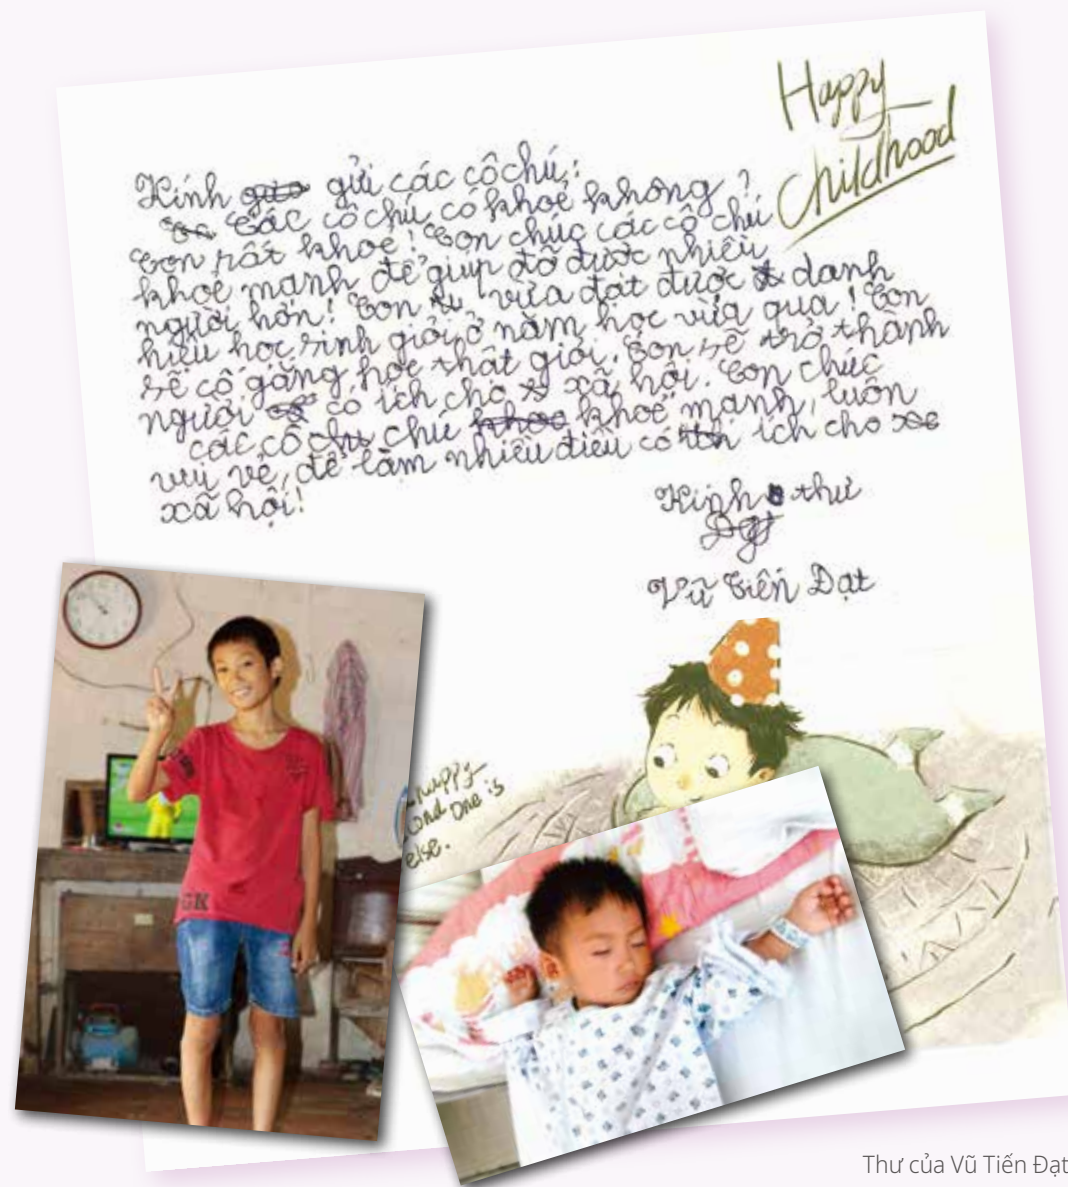 Happy
Childhood
Kính gửi các cô chú:
Các cô chú có khoẻ không?
Con rất khoẻ! Con chúc các cô chú
khoẻ mạnh để giúp đỡ được nhiều
người hơn! Con vừa đạt được danh
hiệu học sinh giỏi ở năm học vừa qua! Con
sẽ cố gắng học thật giỏi. Con sẽ trở thành
người có ích cho xã hội. Con chúc
các cô chú khoẻ mạnh, luôn
vui vẻ, để làm nhiều điều có ích cho
xã hội!
Kính thư
Đạt
Vũ Tiến Đạt
happy
and One is
else.
GK
Thư của Vũ Tiến Đạt